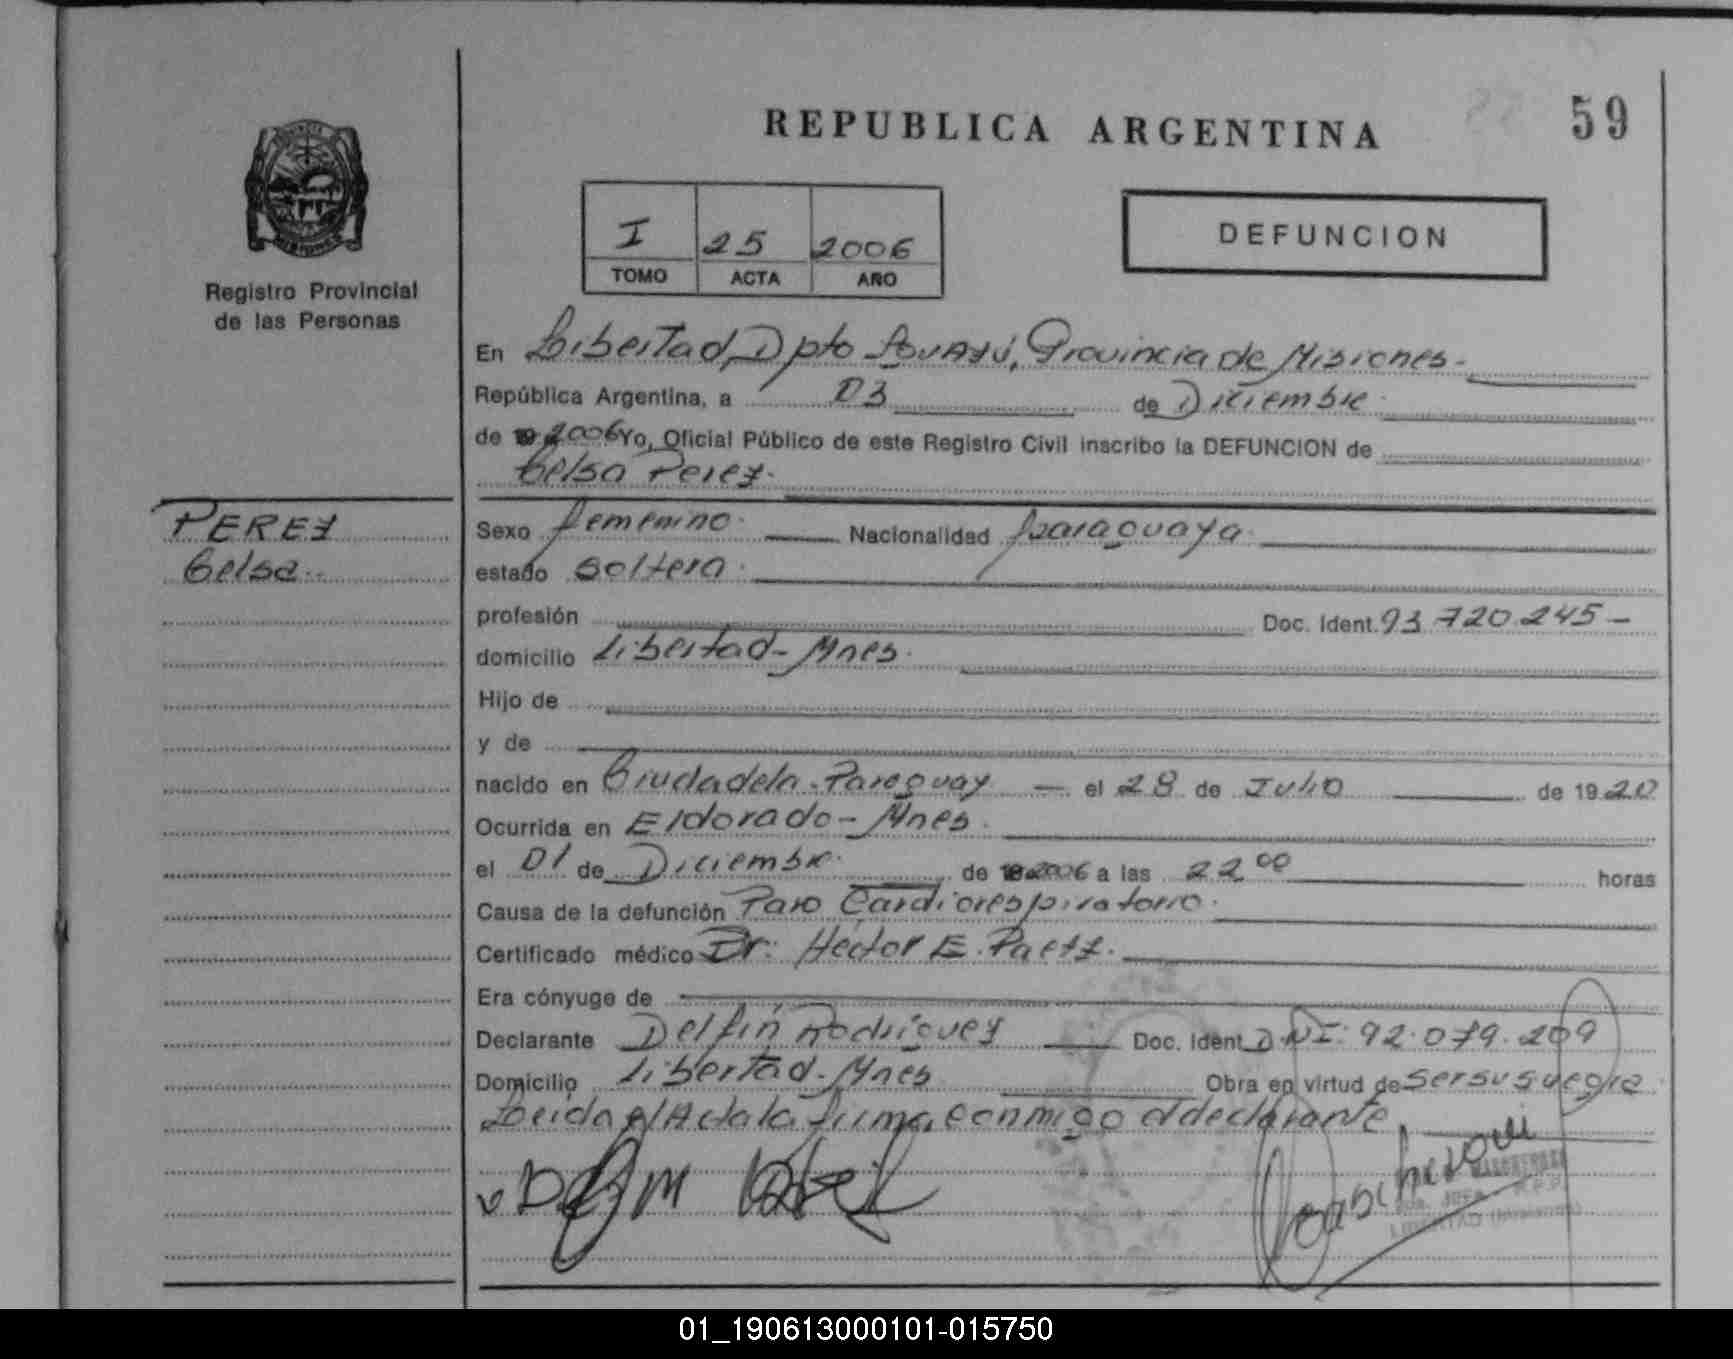 REPUBLICA ARGENTINA
59
I 25 2006
TOMO ACTA AÑO
DEFUNCION
Registro Provincial
de las Personas
En Libertad, Dpto Iguazú, Provincia de Misiones.
República Argentina, a 03 de Diciembre
de 19 2006 Yo, Oficial Público de este Registro Civil inscribo la DEFUNCION de
Celsa Perez.
PEREZ
Celsa.
Sexo femenino. Nacionalidad paraguaya.
estado soltera.
profesión Doc. Ident. 93.720.245-
domicilio Libertad-Mnes.
Hijo de
y de
nacido en Ciudadela-Paraguay el 28 de Julio de 1920
Ocurrida en Eldorado-Mnes.
el 01 de Diciembre. de 19 2006 a las 22 00 horas
Causa de la defunción Paro Cardiorespiratorio.
Certificado médico Dr. Héctor E. Paetz.
Era cónyuge de
Declarante Delfín Rodríguez Doc. Ident. DNI. 92.079.209
Domicilio Libertad-Mnes Obra en virtud de ser su suegra
Leida el Acta la firma conmigo el declarante
01_190613000101-015750